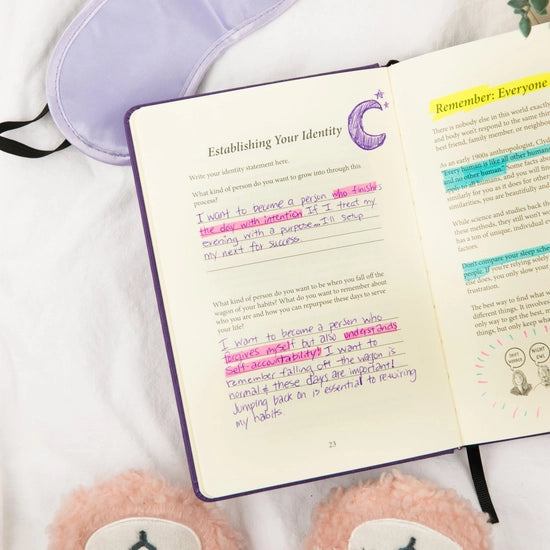 Establishing Your Identity
Write your identity statement here.
What kind of person do you want to grow into through this
process?
I want to become a person who finishes
the day with intention. If I treat my
evening with a purpose... I'll setup
my next for success
What kind of person do you want to be when you fall off the
wagon of your habits? What do you want to remember about
who you are and how you can repurpose these days to serve
your life?
I want to become a person who
forgives myself but also understands
self-accountability! I want to
remember falling off the wagon is
normal & these days are important!
Jumping back on is essential to rewiring
my habits.
23
Remember: Everyone
There is nobody else in this world exactly
and body won't respond to the same thi
best friend, family member, or neighbor
As an early 1900s anthropologist, Cly
"Every human is like all other humans
and no other human." Some facts abou
to all humans, and you will fin
similarly for you as it does for other
similarities, you're beautifully and
While science and studies back the
these methods, they still won't wo
has a ton of unique, individual
factors.
Don't compare your sleep sche
people. If you're relying solely
else does, you only slow your
frustration.
The best way to find what w
different things. It involves
only way to get the best, m
things, but only keep what
NIGHT
OWL